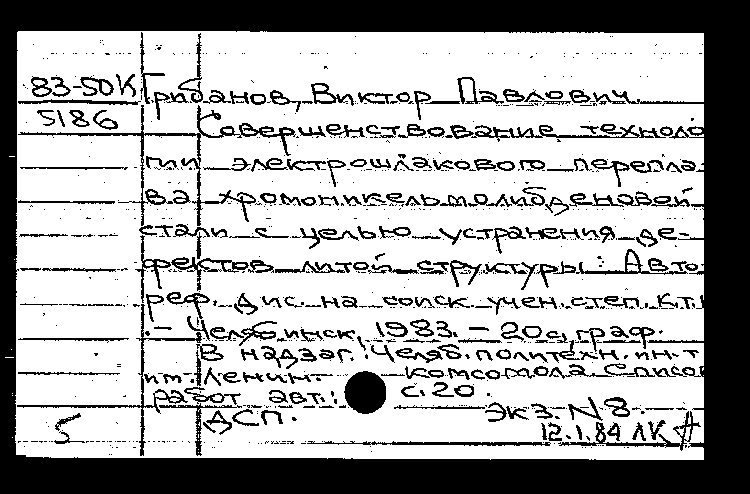 83-50К Грибанов, Виктор Павлович.
5186 Совершенствование техноло
гии электрошлакового перепла-
ва хромоникельмолибденовой
стали с целью устранения де-
фектов литой структуры: Авто-
реф. дис. на соиск. учен. степ. к.т.
.- Челябинск, 1983. - 20с, граф.
В надзаг.: Челяб. политехн. ин-т
им. Ленин. комсомола. Список
работ авт.: с. 20.
ДСП. Экз. N 8.
5 12.1.84 ЛК